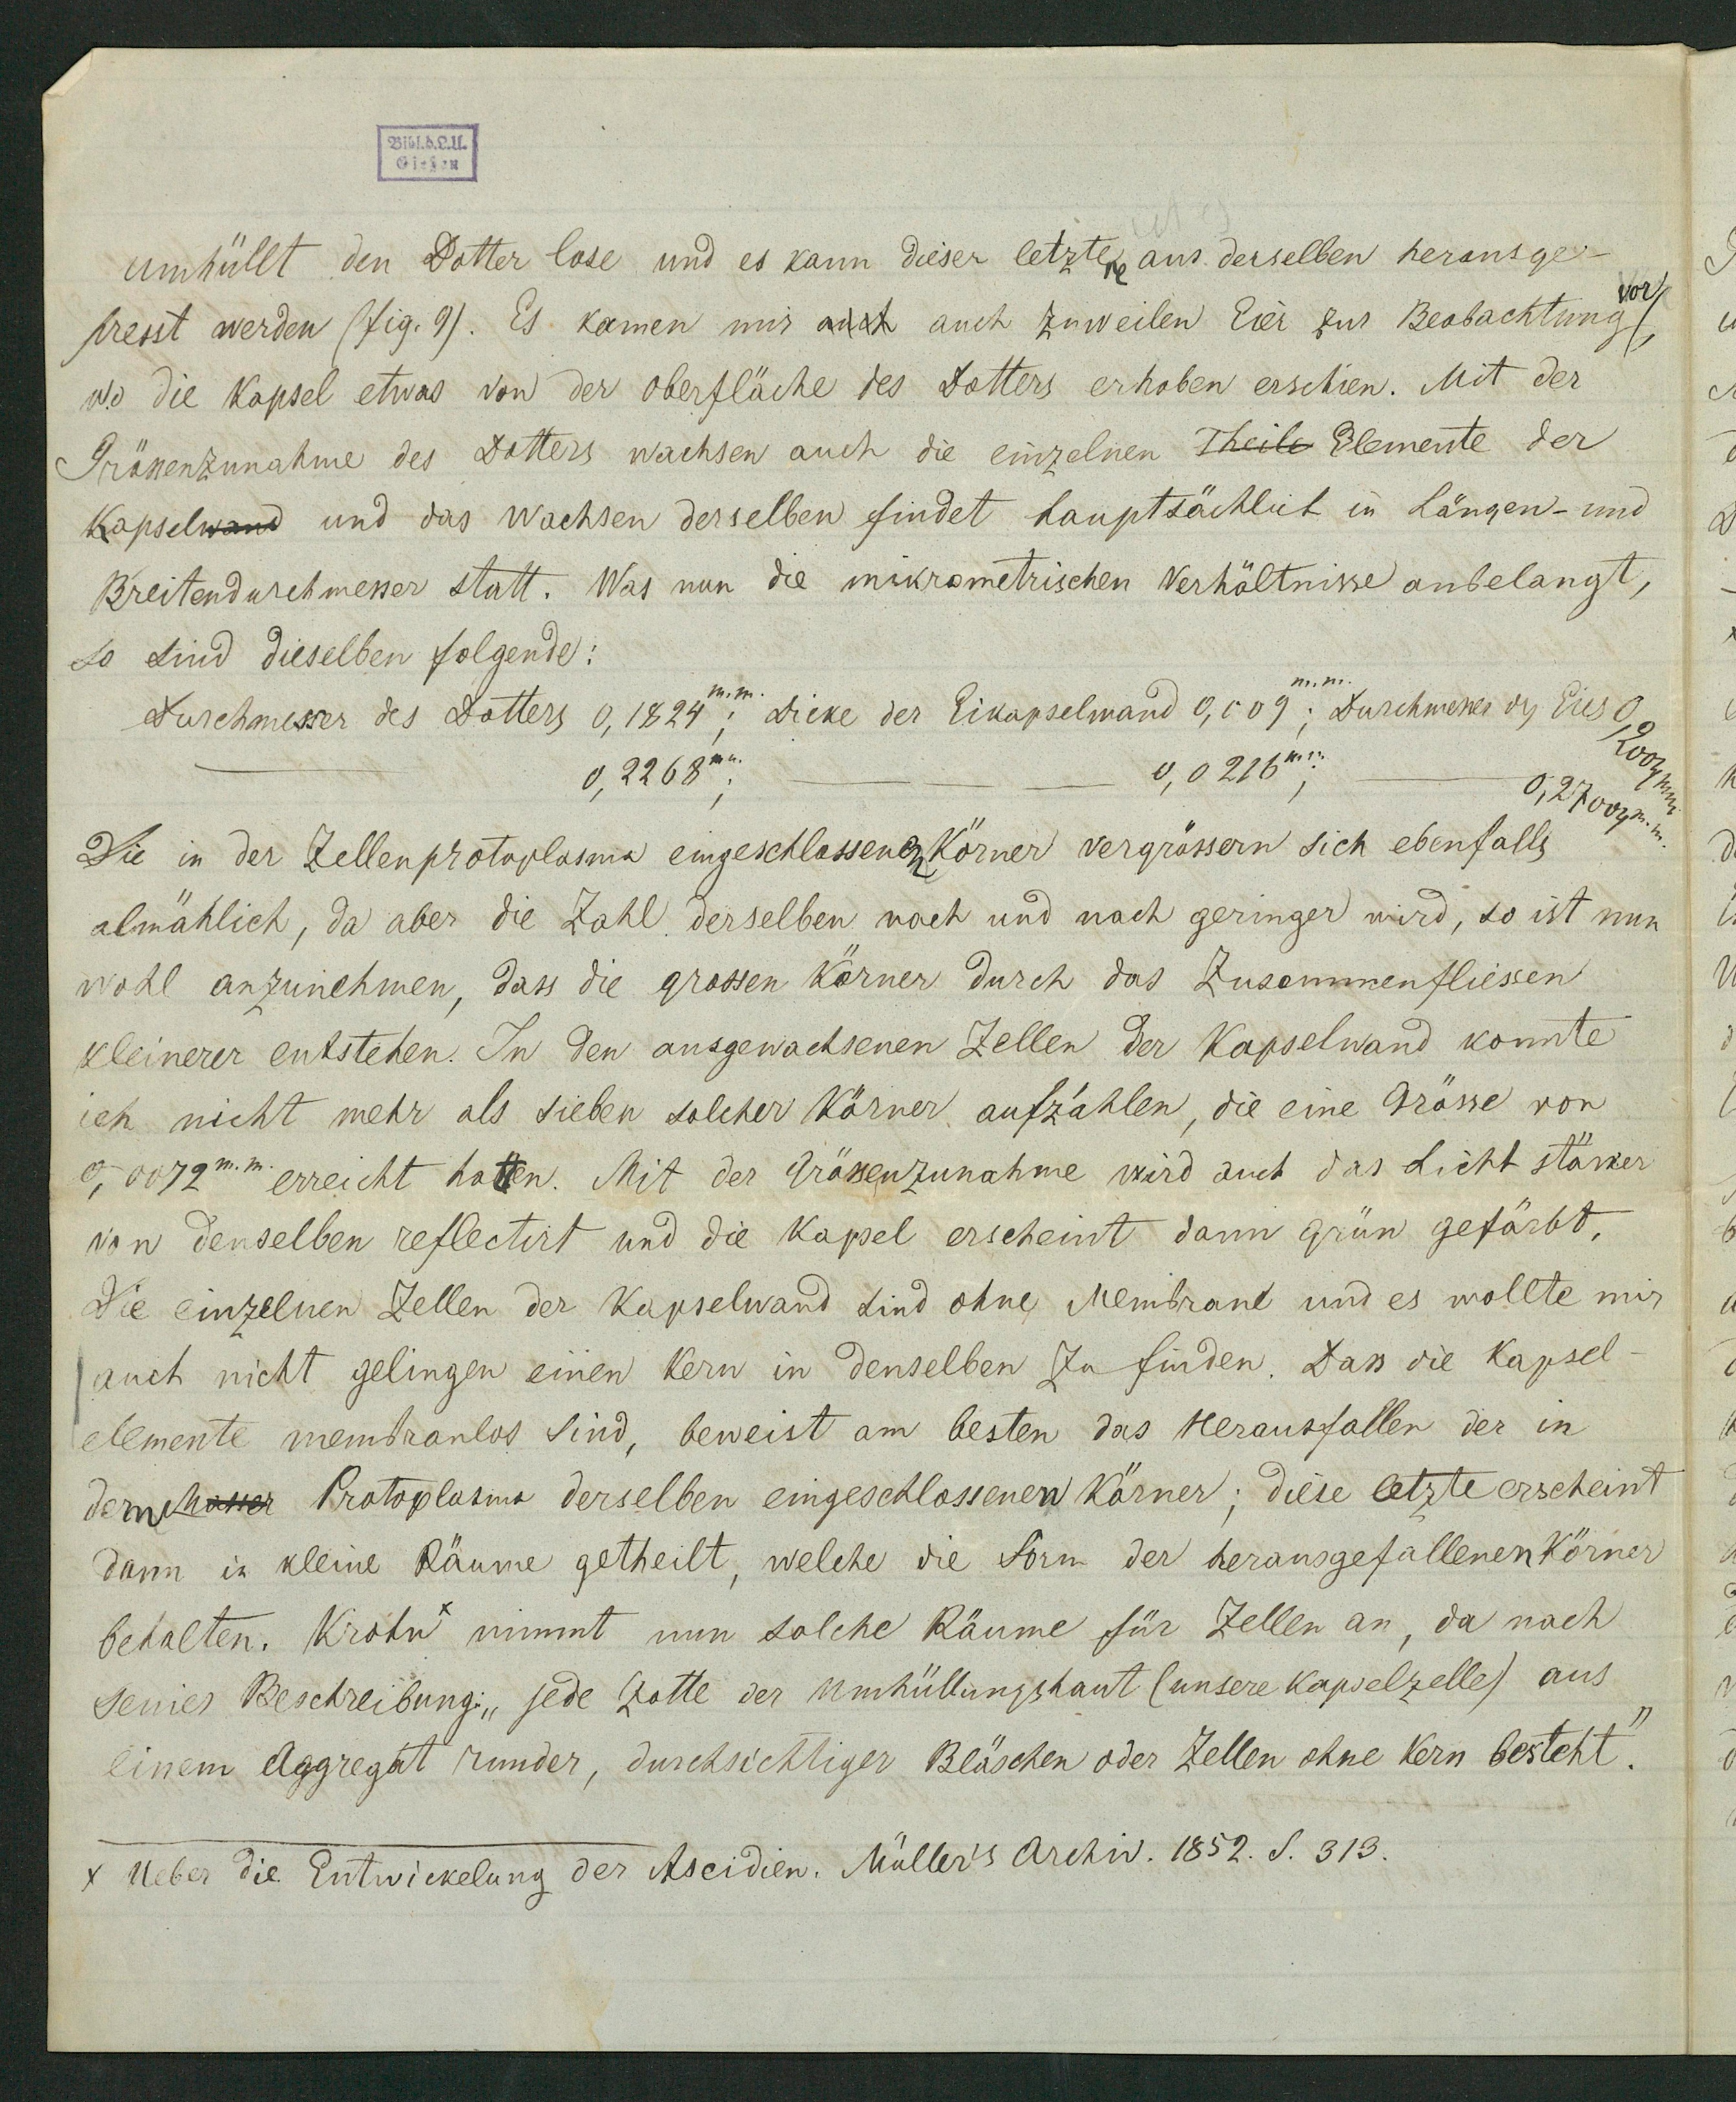 Bibl.d.L.U.
Gießen
umhüllt den Dotter lose und es kann dieser letztere aus derselben herausge-
presst werden (fig. 9). Es kamen mir auch auch zuweilen Eier zur Beobachtung vor,
wo die Kapsel etwas von der Oberfläche des Dotters erhoben erschien. Mit der
Grössenzunahme des Dotters wachsen auch die einzelnen Theile Elemente der
Kapselwand und das Wachsen derselben findet hauptsächlich in Längen- und
Breitendurchmesser statt. Was nun die mikrometrischen Verhältnisse anbelangt,
so sind dieselben folgende:
Durchmesser des Dotters 0,1824 m.m.; Dicke der Eikapselwand 0,009 m.m.; Durchmesser des Eies 0,2004 mm
— 0,2268 m.m.; — — 0,0216 m.m.; — 0,2700 m.m.
Die in der Zellenprotoplasma eingeschlossenen Körner vergrössern sich ebenfalls
almählich, da aber die Zahl derselben nach und nach geringer wird, so ist nun
wohl anzunehmen, dass die grossen Körner durch das Zusammenfliessen
kleinerer entstehen. In den ausgewachsenen Zellen der Kapselwand konnte
ich nicht mehr als sieben solcher Körner aufzählen, die eine Grösse von
0,0072 m.m. erreicht hatten. Mit der Grössenzunahme wird auch das Licht stärker
von denselben reflectirt und die Kapsel erscheint dann grün gefärbt.
Die einzelnen Zellen der Kapselwand sind ohne Membrane und es wollte mir
auch nicht gelingen einen Kern in denselben zu finden. Dass die Kapsel-
elemente membranlos sind, beweist am besten das Herausfallen der in
dem Protoplasma derselben eingeschlossenen Körner; diese letzte erscheint
dann in kleine Räume getheilt, welche die Form der herausgefallenen Körner
behalten. Krohn x nimmt nun solche Räume für Zellen an, da nach
seiner Beschreibung: „jede Zotte der Umhüllungshaut (unsere Kapselzelle) aus
einem Aggregat runder, durchsichtiger Bläschen oder Zellen ohne Kern besteht".
x Ueber die Entwickelung der Ascidien. Müller's Archiv. 1852. S. 313.